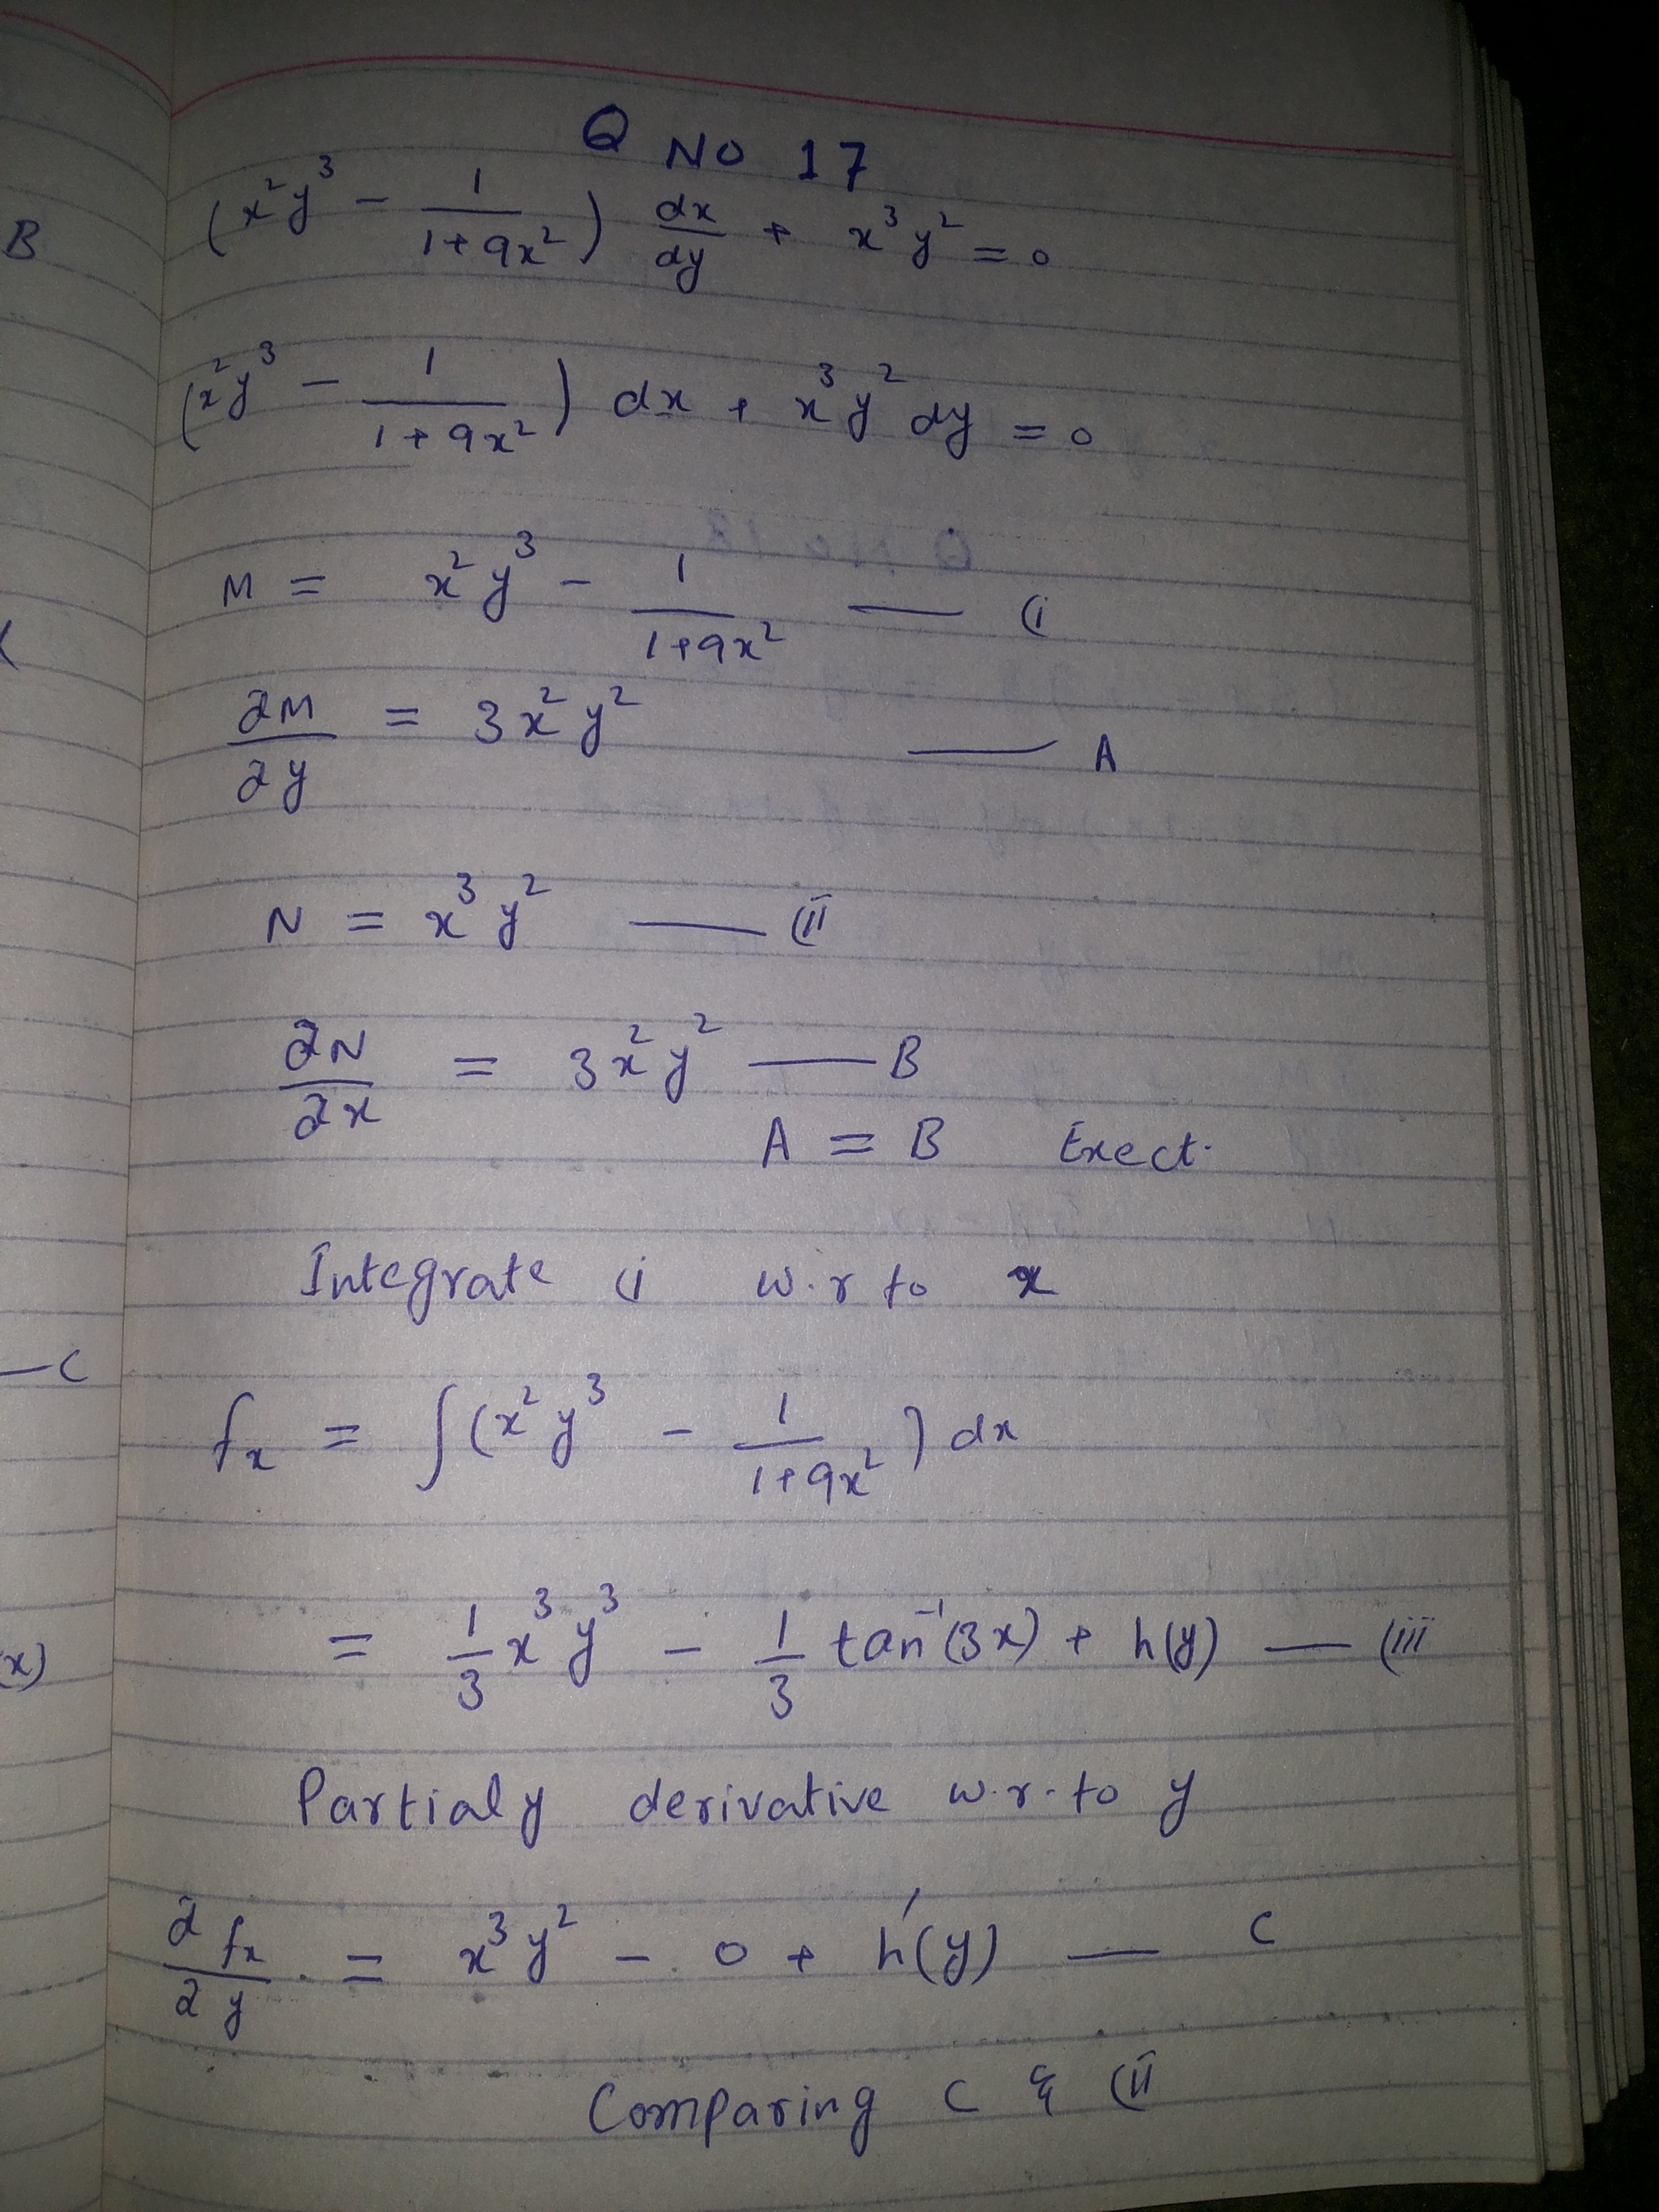 Q No 17
(x²y³ - 1/(1+9x²)) dx/dy + x³y² = 0
(x²y³ - 1/(1+9x²)) dx + x³y² dy = 0
M = x²y³ - 1/(1+9x²) — (i
∂M/∂y = 3x²y² — A
N = x³y² — (ii
∂N/∂x = 3x²y² — B
A = B Exect.
Integrate (i w.r to x
fx = ∫(x²y³ - 1/(1+9x²)) dx
= 1/3 x³y³ - 1/3 tan⁻¹(3x) + h(y) — (iii
Partialy derivative w.r.to y
∂fx/∂y = x³y² - 0 + h'(y) — C
Comparing C & (ii
B
—C
x)